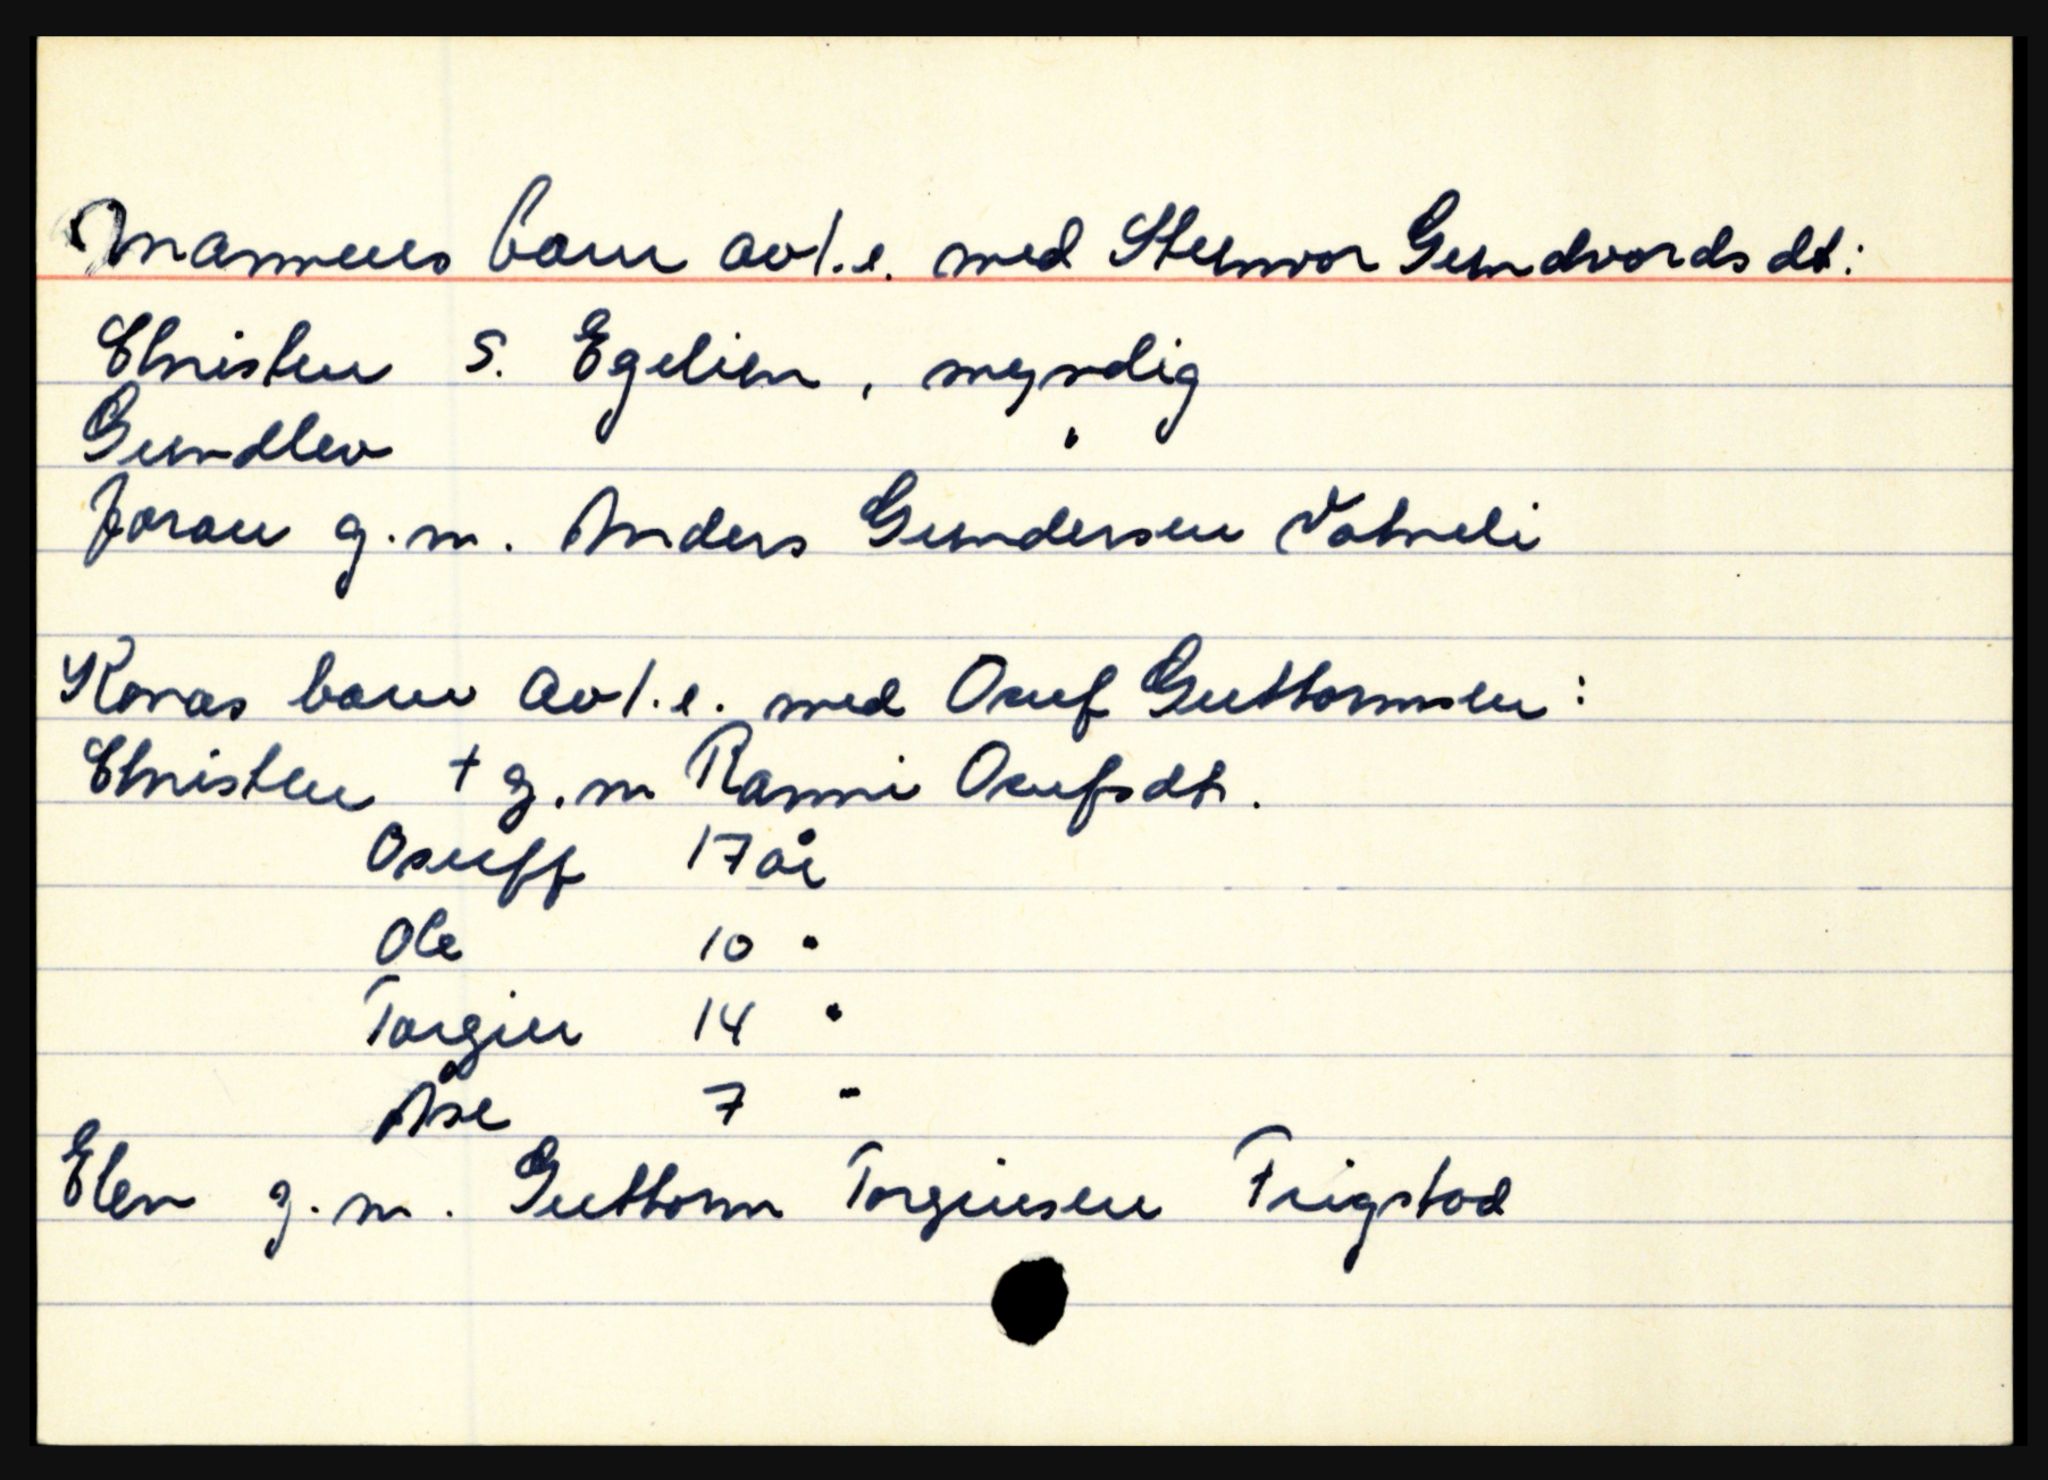 Mannens barn avl.e. med Stenvor Gundvordsdt:
Christen S. Egelien, myndig
Gundlev "
Joran g.m. Anders Gundersen Vatneli
Konas barn avl.e. med Osuf Guttormsen:
Christen + g.m Ranni Osufsdt.
Osuff 17 år
Ole 10 "
Torgier 14 "
Åse 7 "
Elen g.m. Guttorm Torgiersen Frigstad